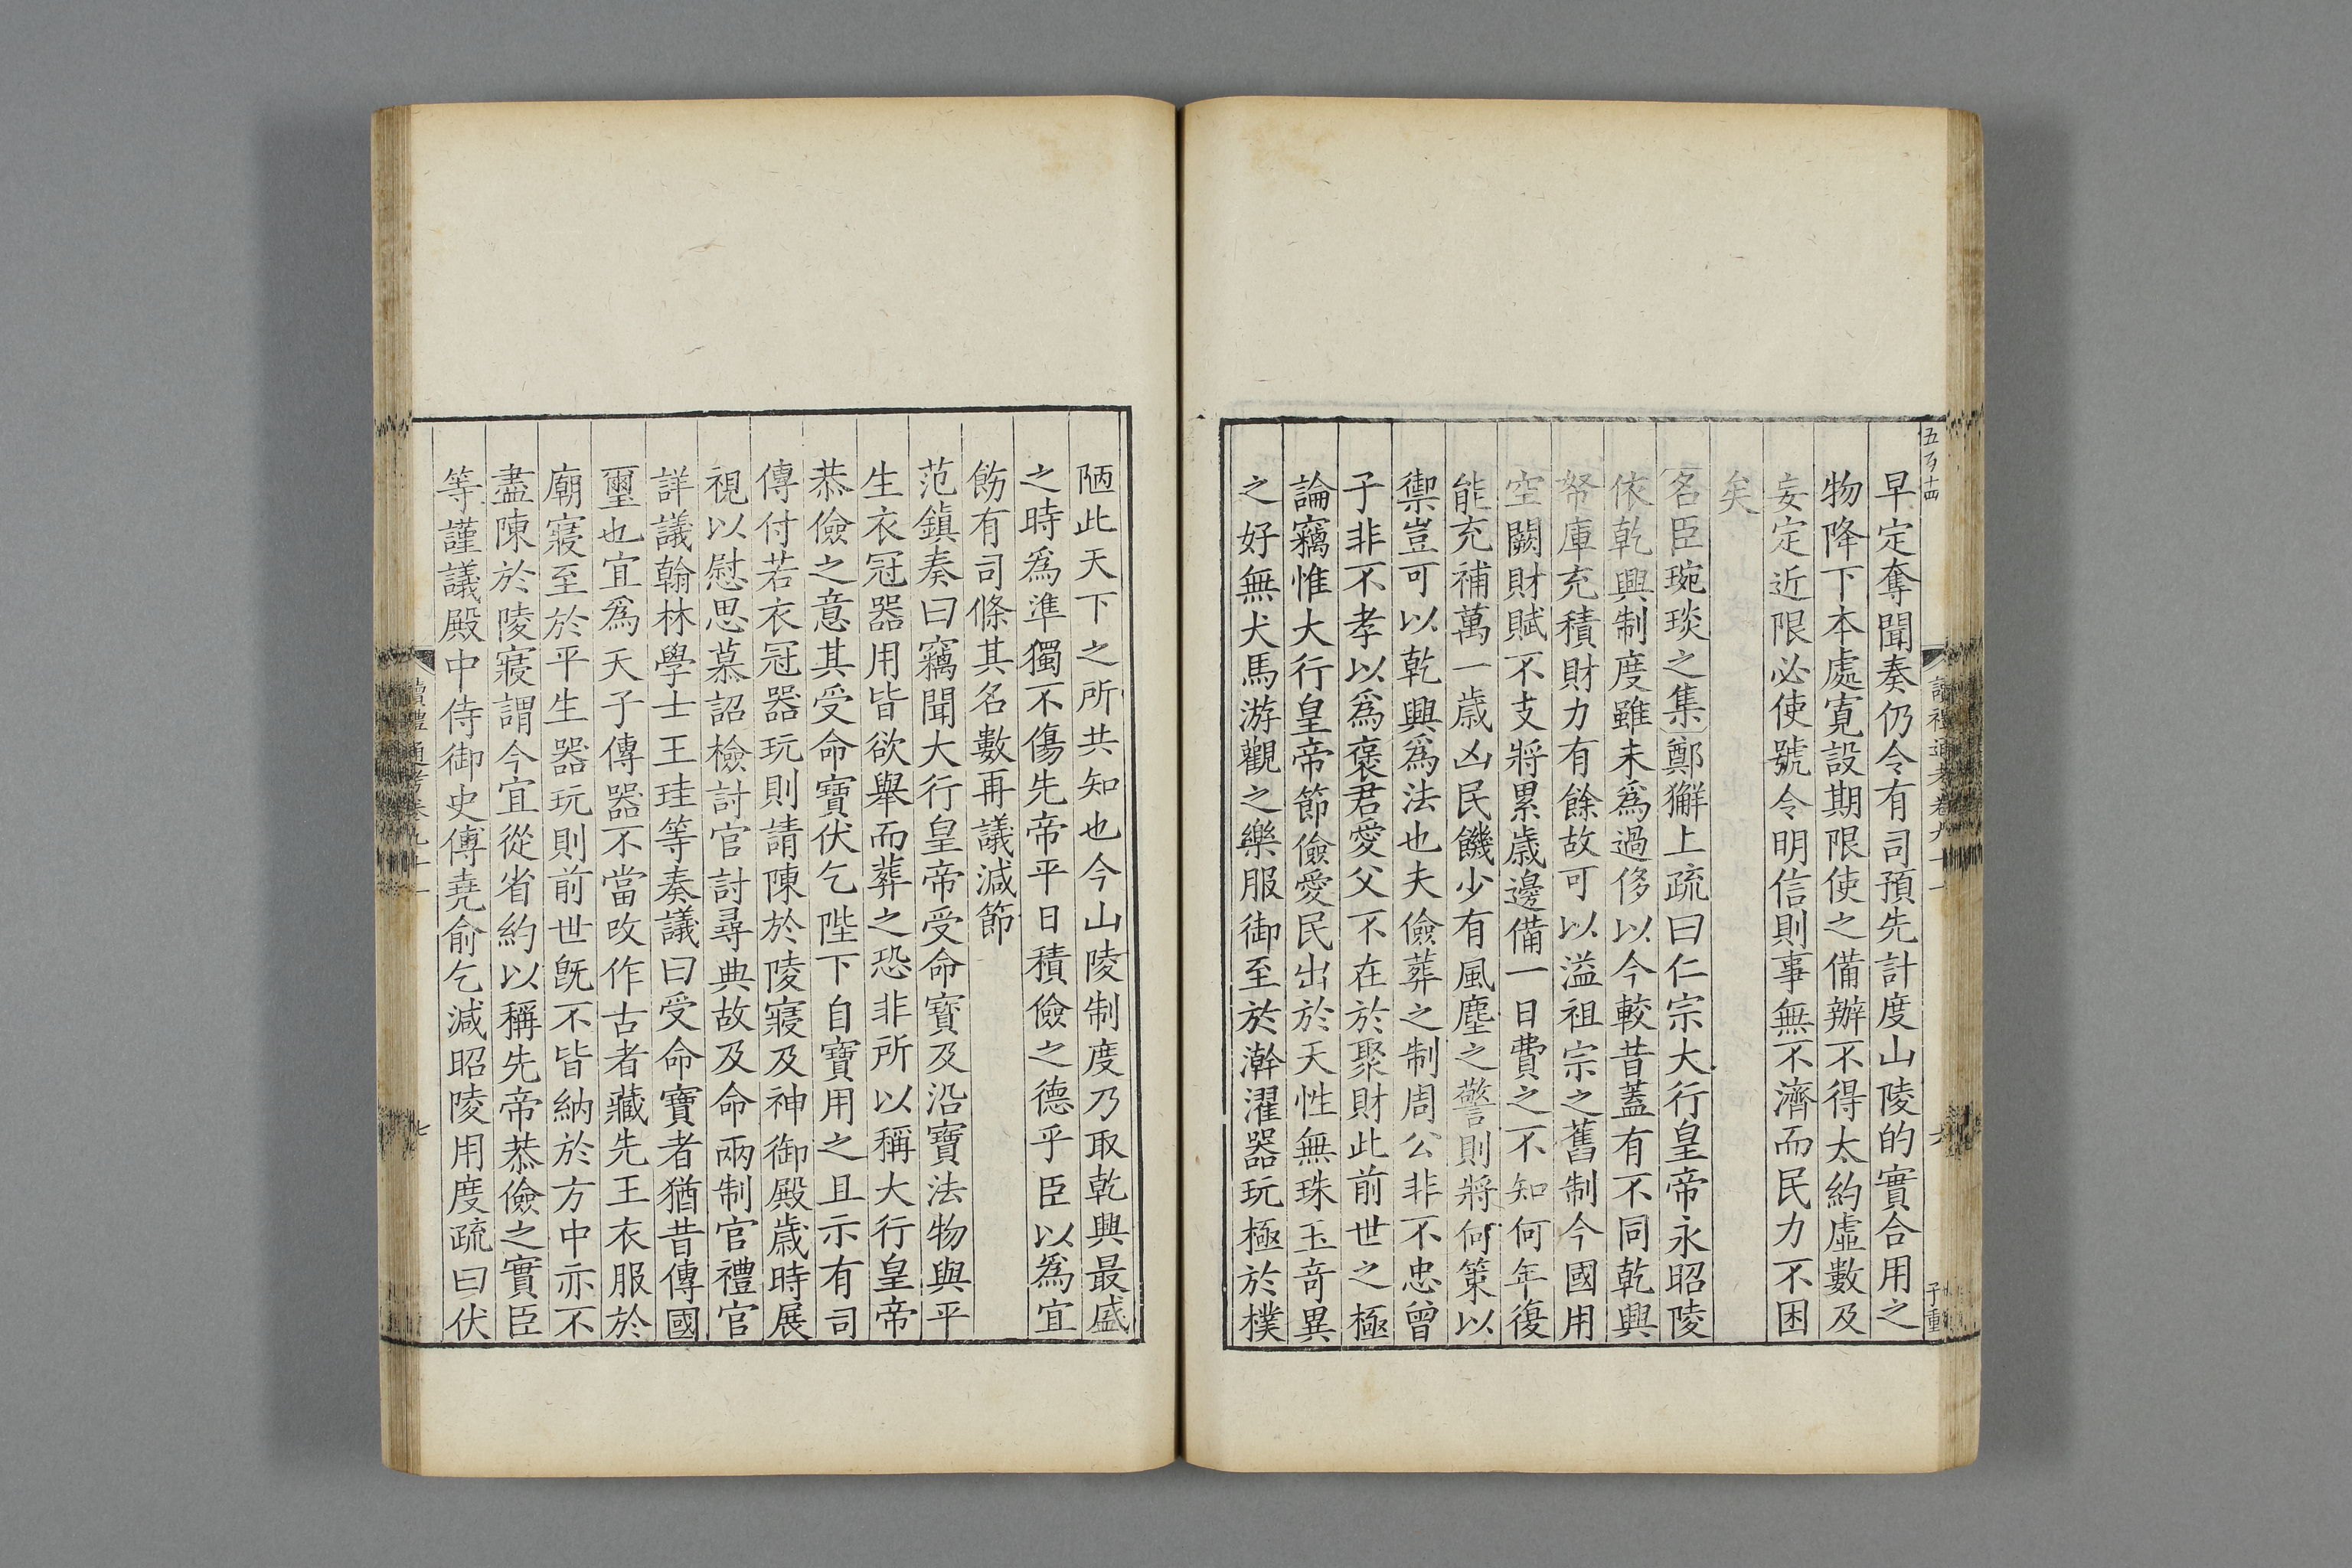 早定奪聞奏仍令有司預先計度山陵的實合用之
物降下本處寬設期限使之備辦不得太約虛數及
妄定近限必使號令明信則事無不濟而民力不困
矣
名臣琬琰之集鄭獬上疏曰仁宗大行皇帝永昭陵
依乾興制度雖未爲過侈以今較昔蓋有不同乾興
帑庫充積財力有餘故可以溢祖宗之舊制今國用
空闕財賦不支將累歲邊備一日費之不知何年復
能充補萬一歲凶民饑少有風塵之警則將何策以
禦豈可以乾興爲法也夫儉葬之制周公非不忠曾
子非不孝以爲褒君愛父不在於聚財此前世之極
論竊惟大行皇帝節儉愛民出於天性無珠玉奇異
之好無犬馬游觀之樂服御至於澣濯器玩極於樸
陋此天下之所共知也今山陵制度乃取乾興最盛
之時爲準獨不傷先帝平日積儉之德乎臣以爲宜
飭有司條其名數再議減節
范鎮奏曰竊聞大行皇帝受命寳及沿寶法物與平
生衣冠器用皆欲舉而葬之恐非所以稱大行皇帝
恭儉之意其受命寶伏乞陛下自寶用之且示有司
傳付若衣冠器玩則請陳於陵寢及神御殿歲時展
視以慰思慕詔檢討官討尋典故及命兩制官禮官
詳議翰林學士王珪等奏議曰受命寶者猶昔傳國
璽也宜爲天子傳器不當改作古者藏先王衣服於
廟寢至於平生器玩則前世旣不皆納於方中亦不
盡陳於陵寢謂今宜從省約以稱先帝恭儉之實臣
等謹議殿中侍御史傅堯俞乞減昭陵用度疏曰伏
讀禮通考卷九十一
七